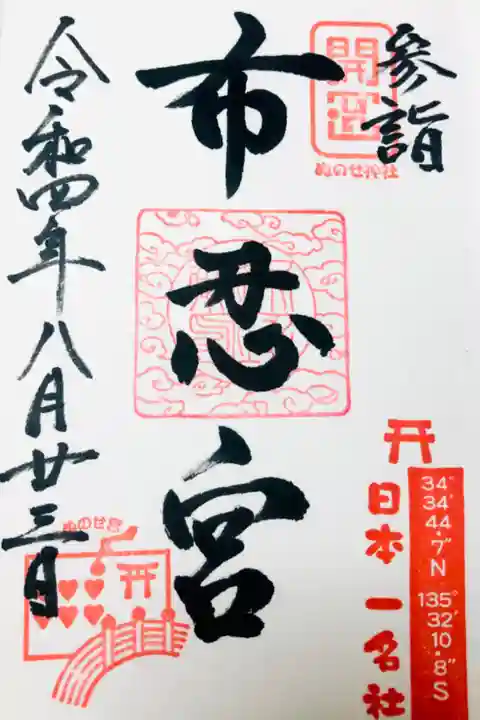 参詣
開運
ぬのせ神社
市忍宮
令和四年八月廿三日
ぬのせ宮
開
日本一名社
34°
34′
44
.7″
N
135°
32′
10
.8″
S